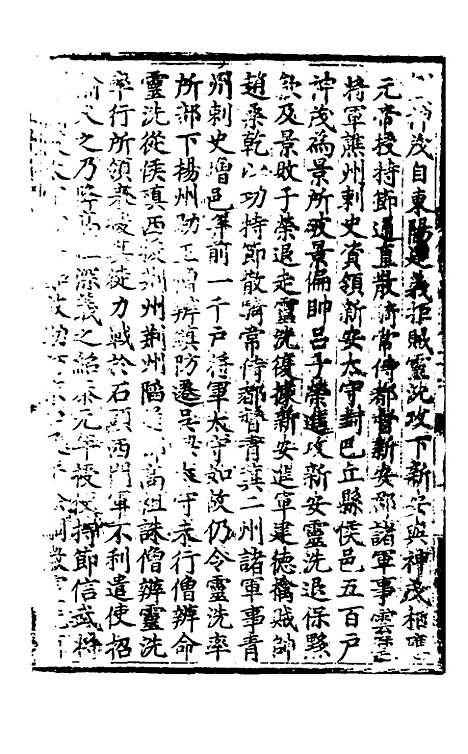 神茂自東陽建義拒賊靈洗攻下新安與神茂相應
元帝授持節通直散騎常侍都督新安郡諸軍事雲麾
將軍譙州刺史資領新安太守封巴丘縣侯邑五百戶
神茂為景所破景偏帥呂子榮進攻新安靈洗退保黟
歙及景敗子榮退走靈洗復據新安進軍建德擒賊帥
趙桑乾以功持節散騎常侍都督青冀二州諸軍事青
州刺史增邑并前一千戶將軍太守如故仍令靈洗率
所部下楊州助王僧辨鎮防遷吳興太守未行僧辨命
靈洗從侯瑱西援荊州荊州陷還都高祖誅僧辨靈洗
率行所領來援其徒力戰於石頭西門軍不利遣使招
諭久之乃降高祖深義之紹泰元年授使持節信武將